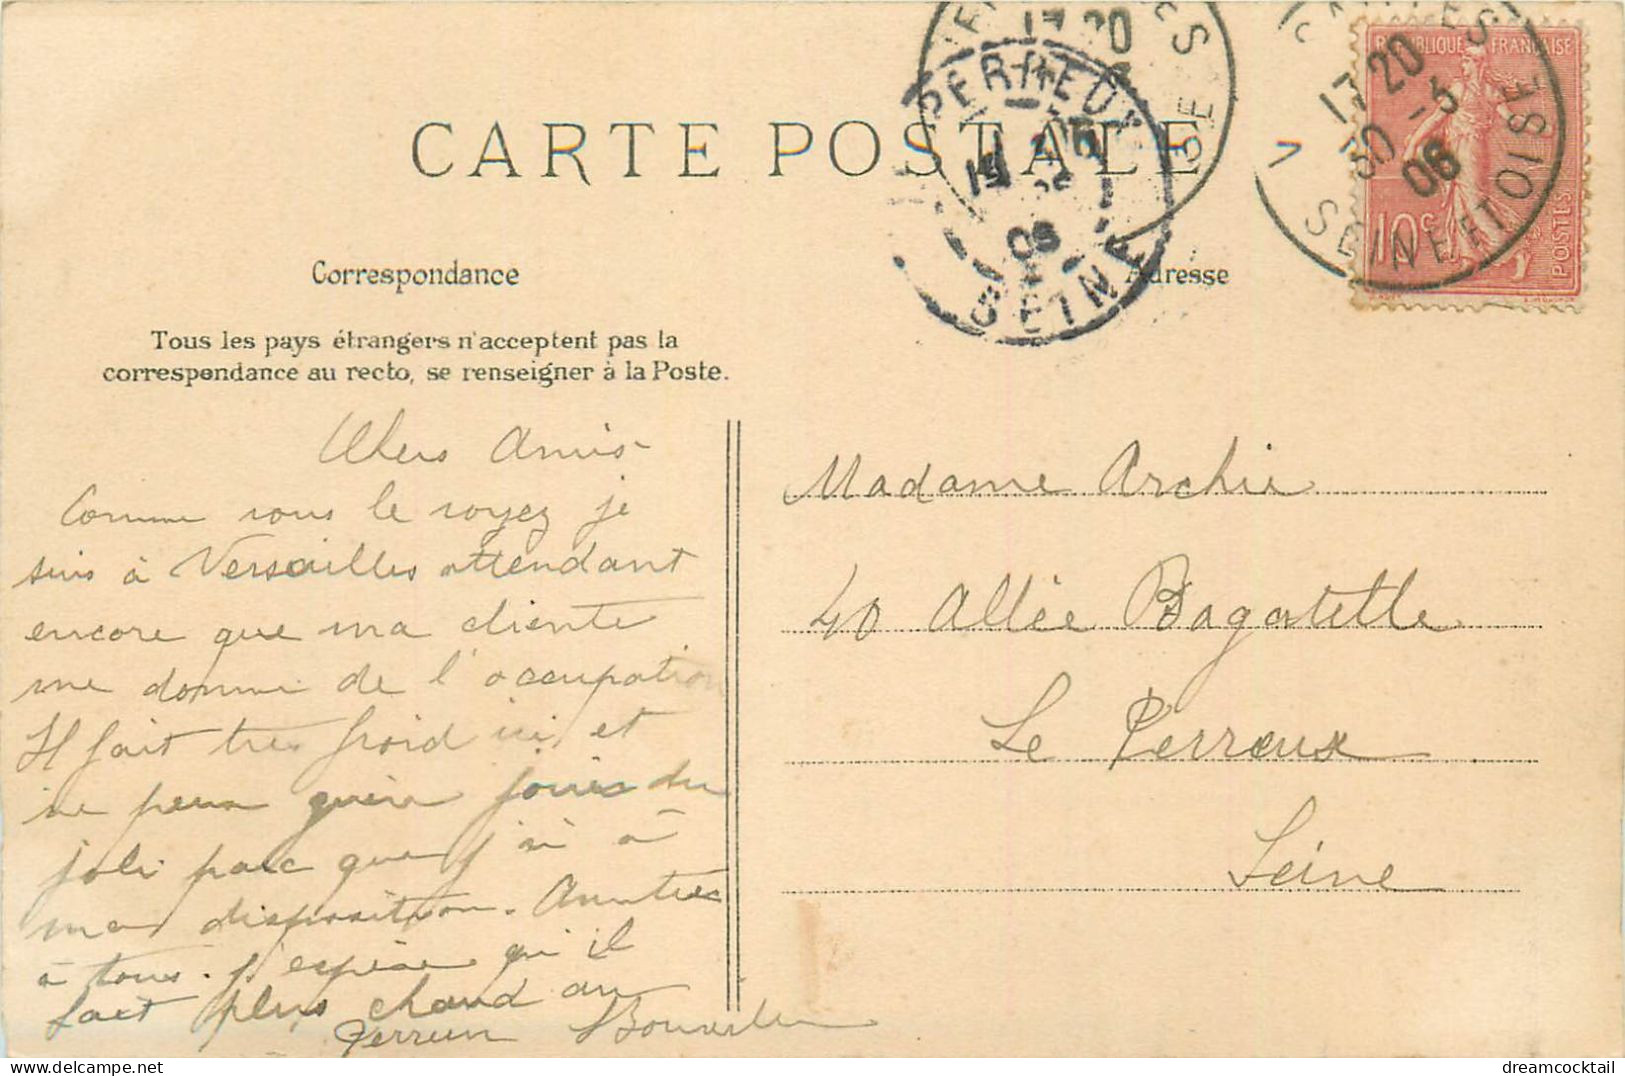 CARTE POSTALE
Correspondance
Adresse
Tous les pays étrangers n'acceptent pas la
correspondance au recto, se renseigner à la Poste.
RÉPUBLIQUE FRANÇAISE
10c
POSTES
17 20
30 - 3
06
SEINE ET OISE
PERREUX
06
SEINE
Chers Amis
Comme vous le voyez je
suis à Versailles attendant
encore que ma cliente
me donne de l'occupation
Il fait très froid ici et
ne peux guère jouir du
joli parc que j'ai à
ma disposition. Amitiés
à tous. J'espère qu'il
fait plus chaud au
Perreux
Madame Archie
40 Allée Bagatelle
Le Perreux
Seine
dreamcocktail